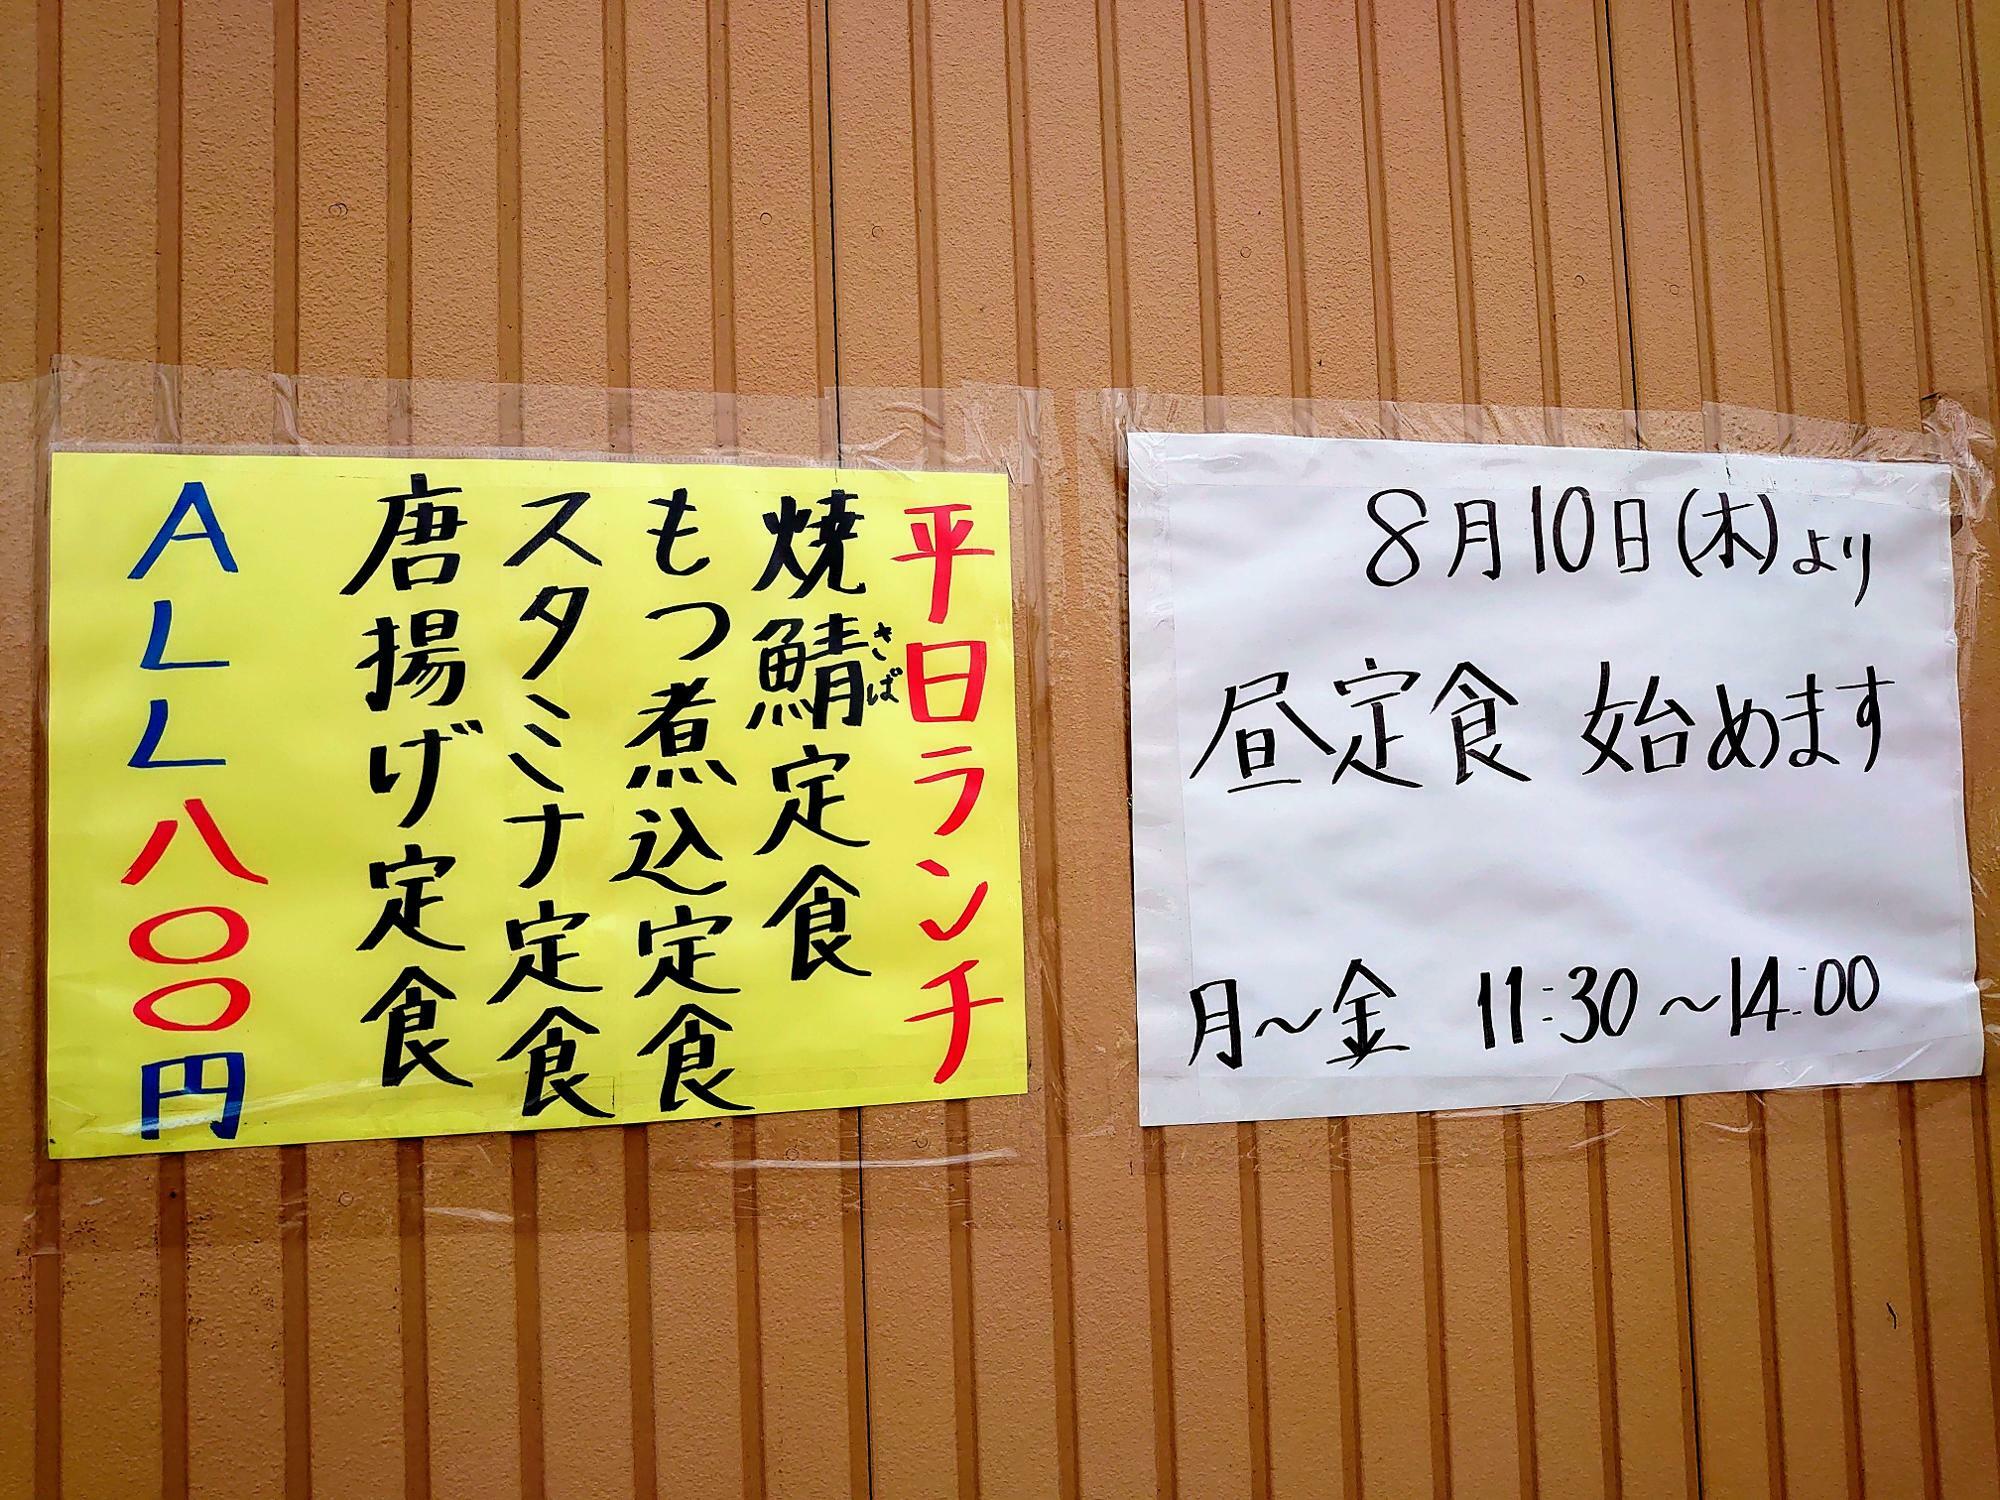 平日ランチ
焼鯖定食
さば
もつ煮込定食
スタミナ定食
唐揚げ定食
ALL八〇〇円
8月10日(木)より
昼定食 始めます
月〜金 11:30〜14:00